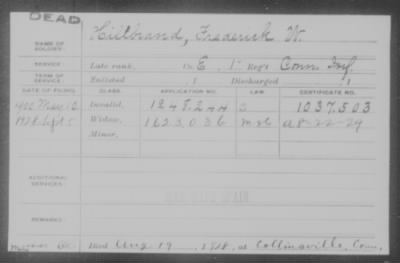 DEAD
NAME OF SOLDIER: Hilbrand, Frederick W.
SERVICE: Late rank, Co. E, 1st Reg't Conn. Inf.
TERM OF SERVICE: Enlisted , 1 Discharged , 1
DATE OF FILING. CLASS. APPLICATION NO. LAW. CERTIFICATE NO.
1900 May 12 Invalid, 1248.244 1037.503
1928 Sept 5 Widow, 1623.036 A 8-22-29
Minor,
ADDITIONAL SERVICES:
REMARKS:
Died Aug. 19, 1928, at Collinsville, Conn.